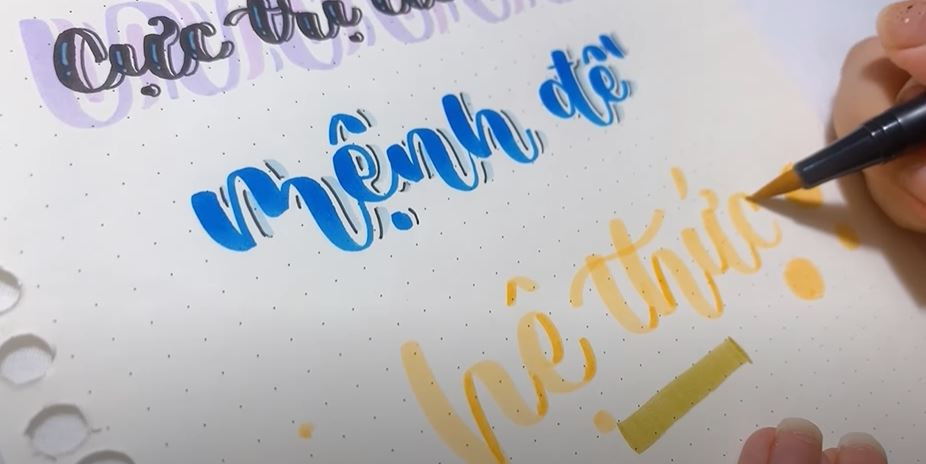 Cực trị
mệnh đề
hệ thức